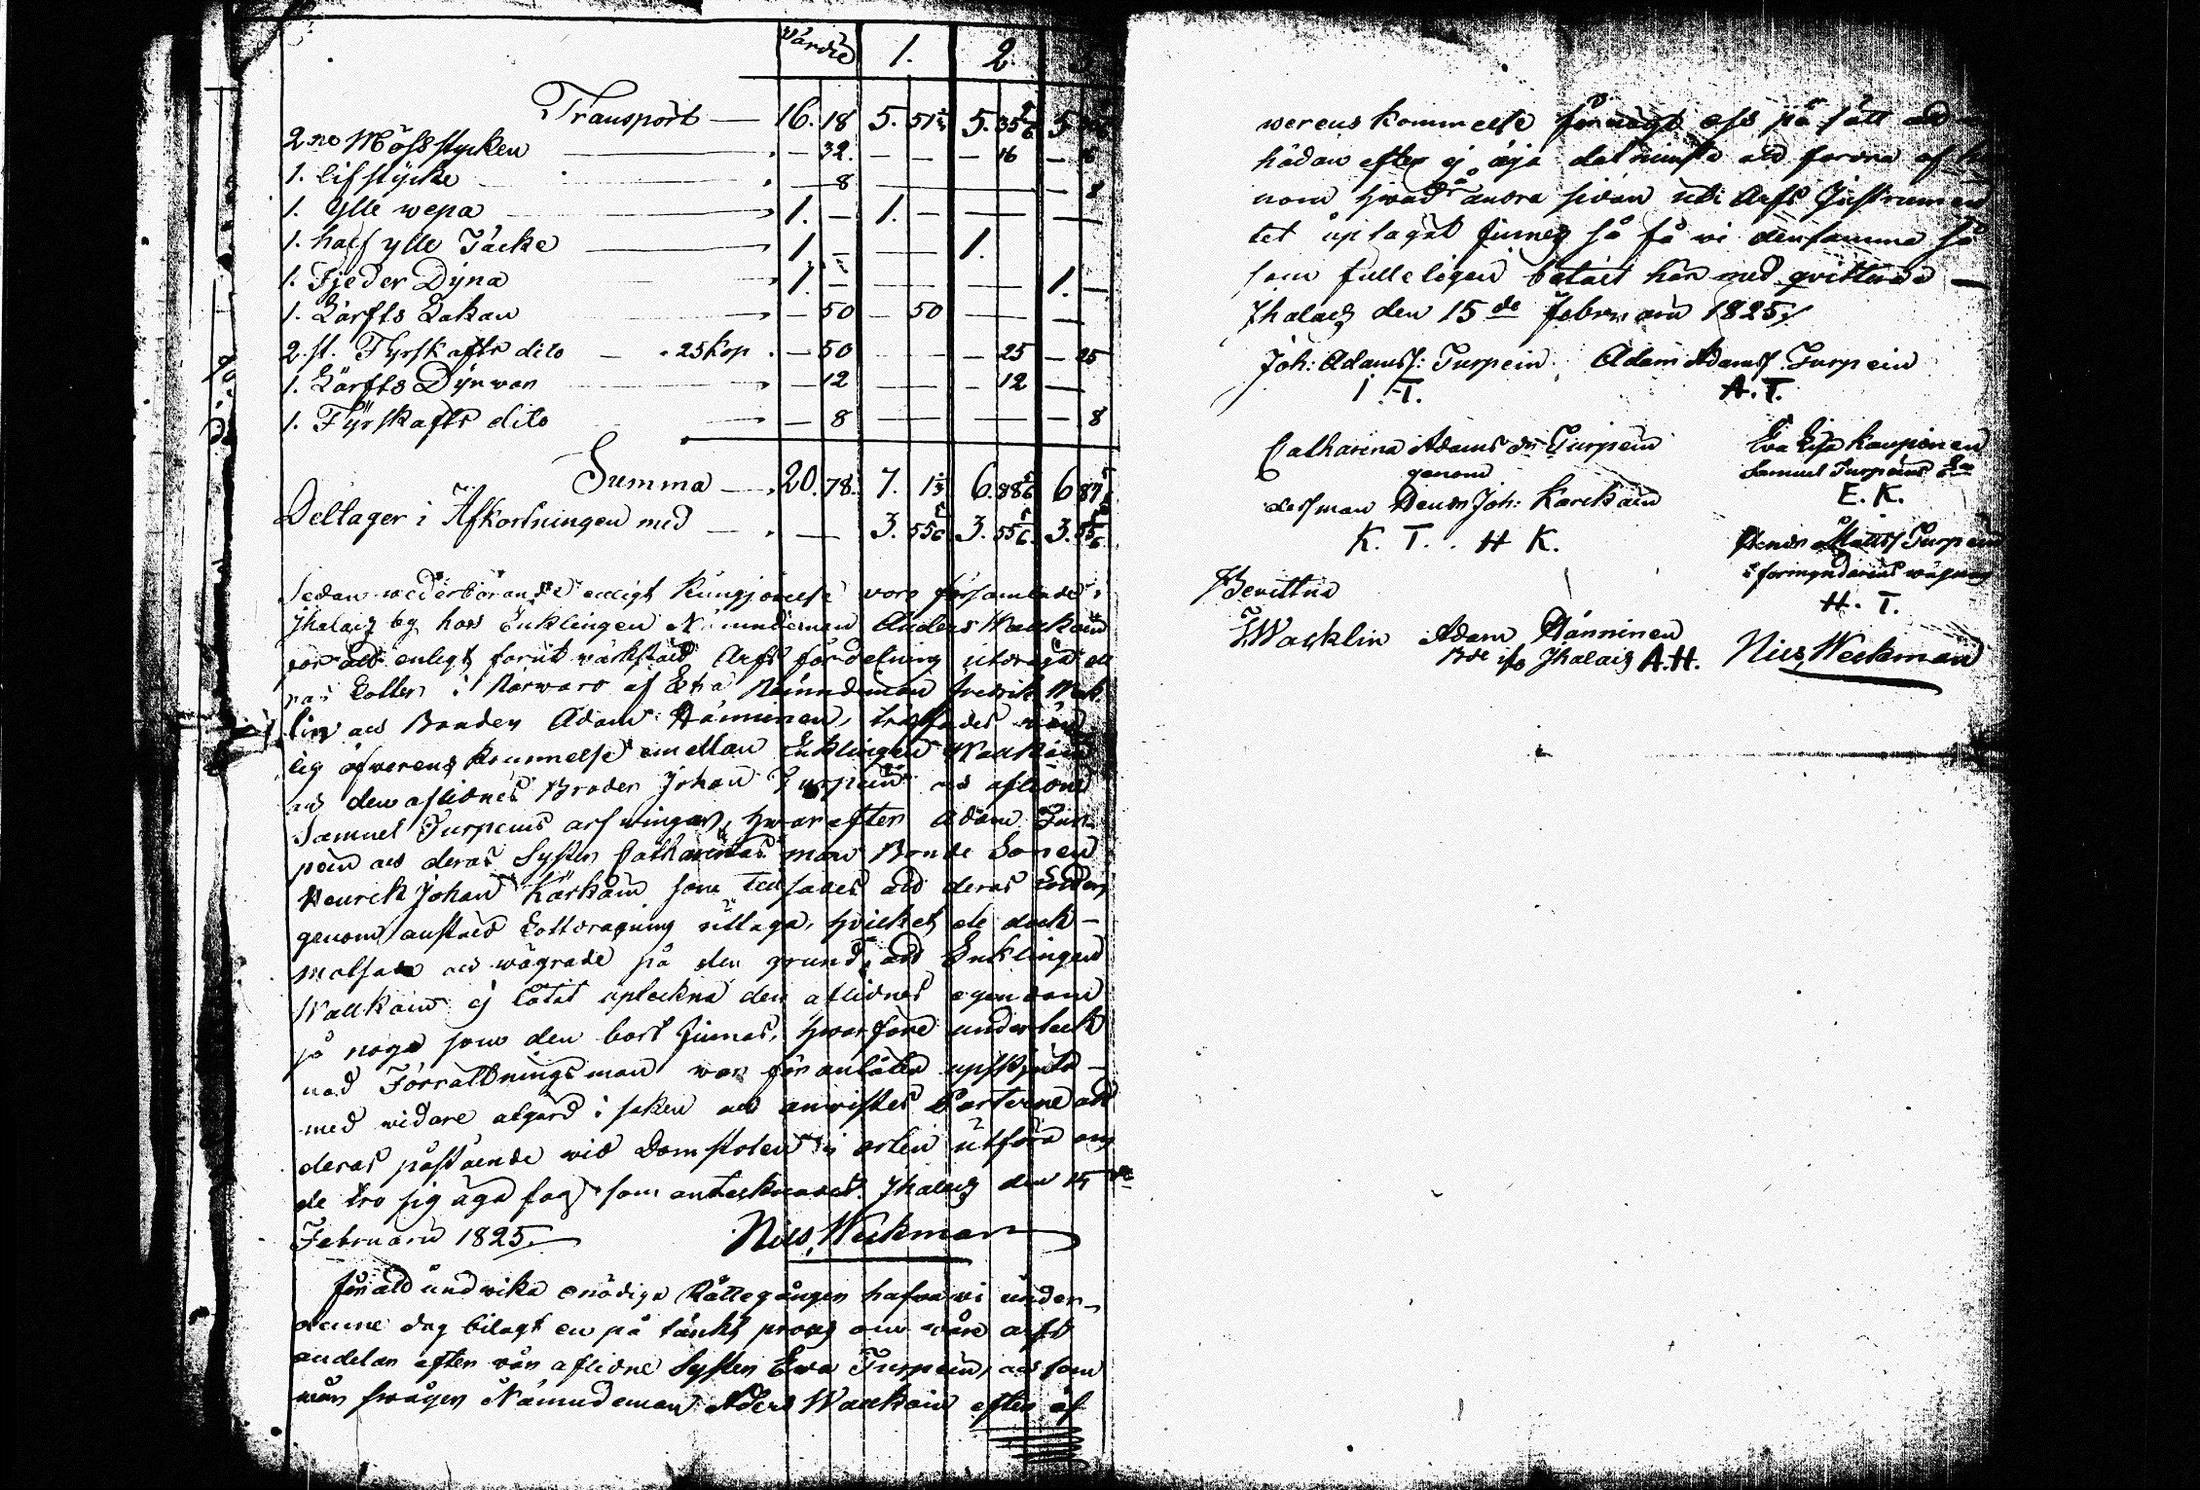 Värde 1. 2. 3
Transport — 16. 18 5. 51 1/3 5. 35 5/6 5.
2 no Mössstycken — 32. — — — 16 — 16
1. lifstycke — 8 — — — — 8
1. Ylle wepa 1. — 1. — — —
1. half ylle Täcke 1. — — 1. —
1. Fjeder Dyna 1. — — — 1. —
1. Lärfts Lakan — 50 — 50 — —
2. st. Fyrskafts dito — 25 kop. — 50 — — — 25 — 25
1. Lärfts Dynvar — 12 — — — 12 —
1. Fyrskafts dito — 8 — — — — 8
Summa — 20. 78. 7. 1 1/3 6. 88 5/6 6 87 5/6
Deltager i Afkortningen med — — 3. 55 5/6 3. 55 5/6. 3. 55 5/6
Sedan wederbörande enligt Kungjörelse voro församlade i
Jhalais by hos Enklingen Nämndeman Anders Waukain
för att enligt förut värkstäld Arfs fördelning utdraga de
ras Lotter i Närwaro af Nämndeman Fredrik Wack
lin och Bonden Adam Hänninen, träffades vän
lig öfverens kommelse emellan Enklingen Waukain
och den aflidnes Broder Johan Turpein och aflidne
Samuel Turpeins arfwingar, hwarefter Adam Tur
pein och deras Syster Catharinas man Bonde Sonen
Henrick Johan Karkain som tillsades att deras Lotter
genom anstäld Lottdragning uttaga, hvilket de dock
motsade och wägrade på den grund, att Enklingen
Waukain ej låtit upteckna den aflidnes egendom
så noga som den bort finnas, hwarföre underteck
nad Förrättningsman war föranlåten upskjuta
med widare åtgärd i saken och anvistes Parterne att
deras påstående wid Domstolen i orten utföra om
de tro sig äga fog som antecknades. Jhalais den 15 de
Februarii 1825.
Nils Weckman
För att undwika onödiga Rättegångar hafwa wi under
denne dag bilagt en på tänkt process om wåre arfs
andelar efter vår aflidne Syster Ewa Turpein, och som
wår swåger Nämndeman Aders Waukain efter öf
werenskommelse förnögt oss på sätt att
hädan efter ej äga det minsta att fordra af ho
nom hwad å andra sidan uti Arfs Instrumen
tet uptagit finnes så få wi densamma så
som fulleligen betalt här med qvittera —
Jhalais den 15 de Februarii 1825.
Joh: Adamss: Turpein Adam Adamss Turpein
I. T. A. T.
Catharina Adams dr Turpein Eva Lisa Kaupinen
genom Samuel Turpeins
dess man Henr Joh: Karckain E. K.
K. T. H K. Henr Matts Turpein
i formyndarens wägnar
Bevittna H. T.
F Wacklin Adam Hänninen
Bde ifr Jhalais A.H. Nils Weckman